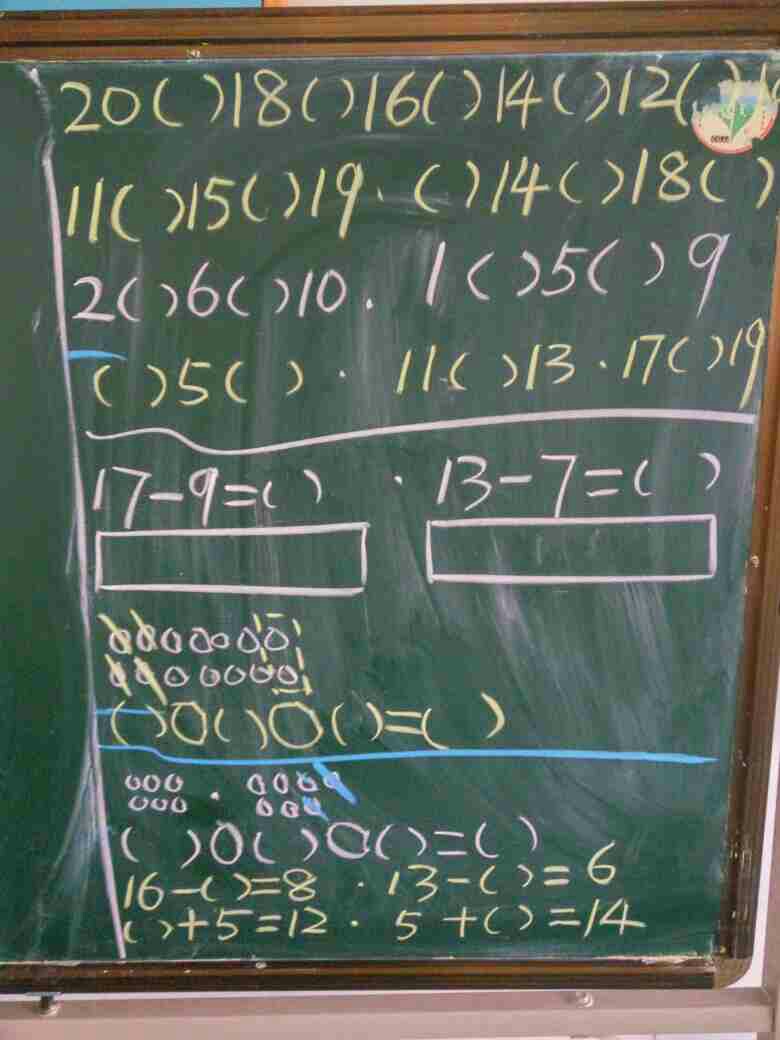 20( )18( )16( )14( )12( )1
11( )15( )19. ( )14( )18( )
2( )6( )10. 1( )5( )9
( )5( ) · 11( )13 · 17( )19
17-9=( ) · 13-7=( )
( )○( )○( )=( )
( )○( )○( )=( )
16-( )=8 · 13-( )=6
( )+5=12 · 5+( )=14